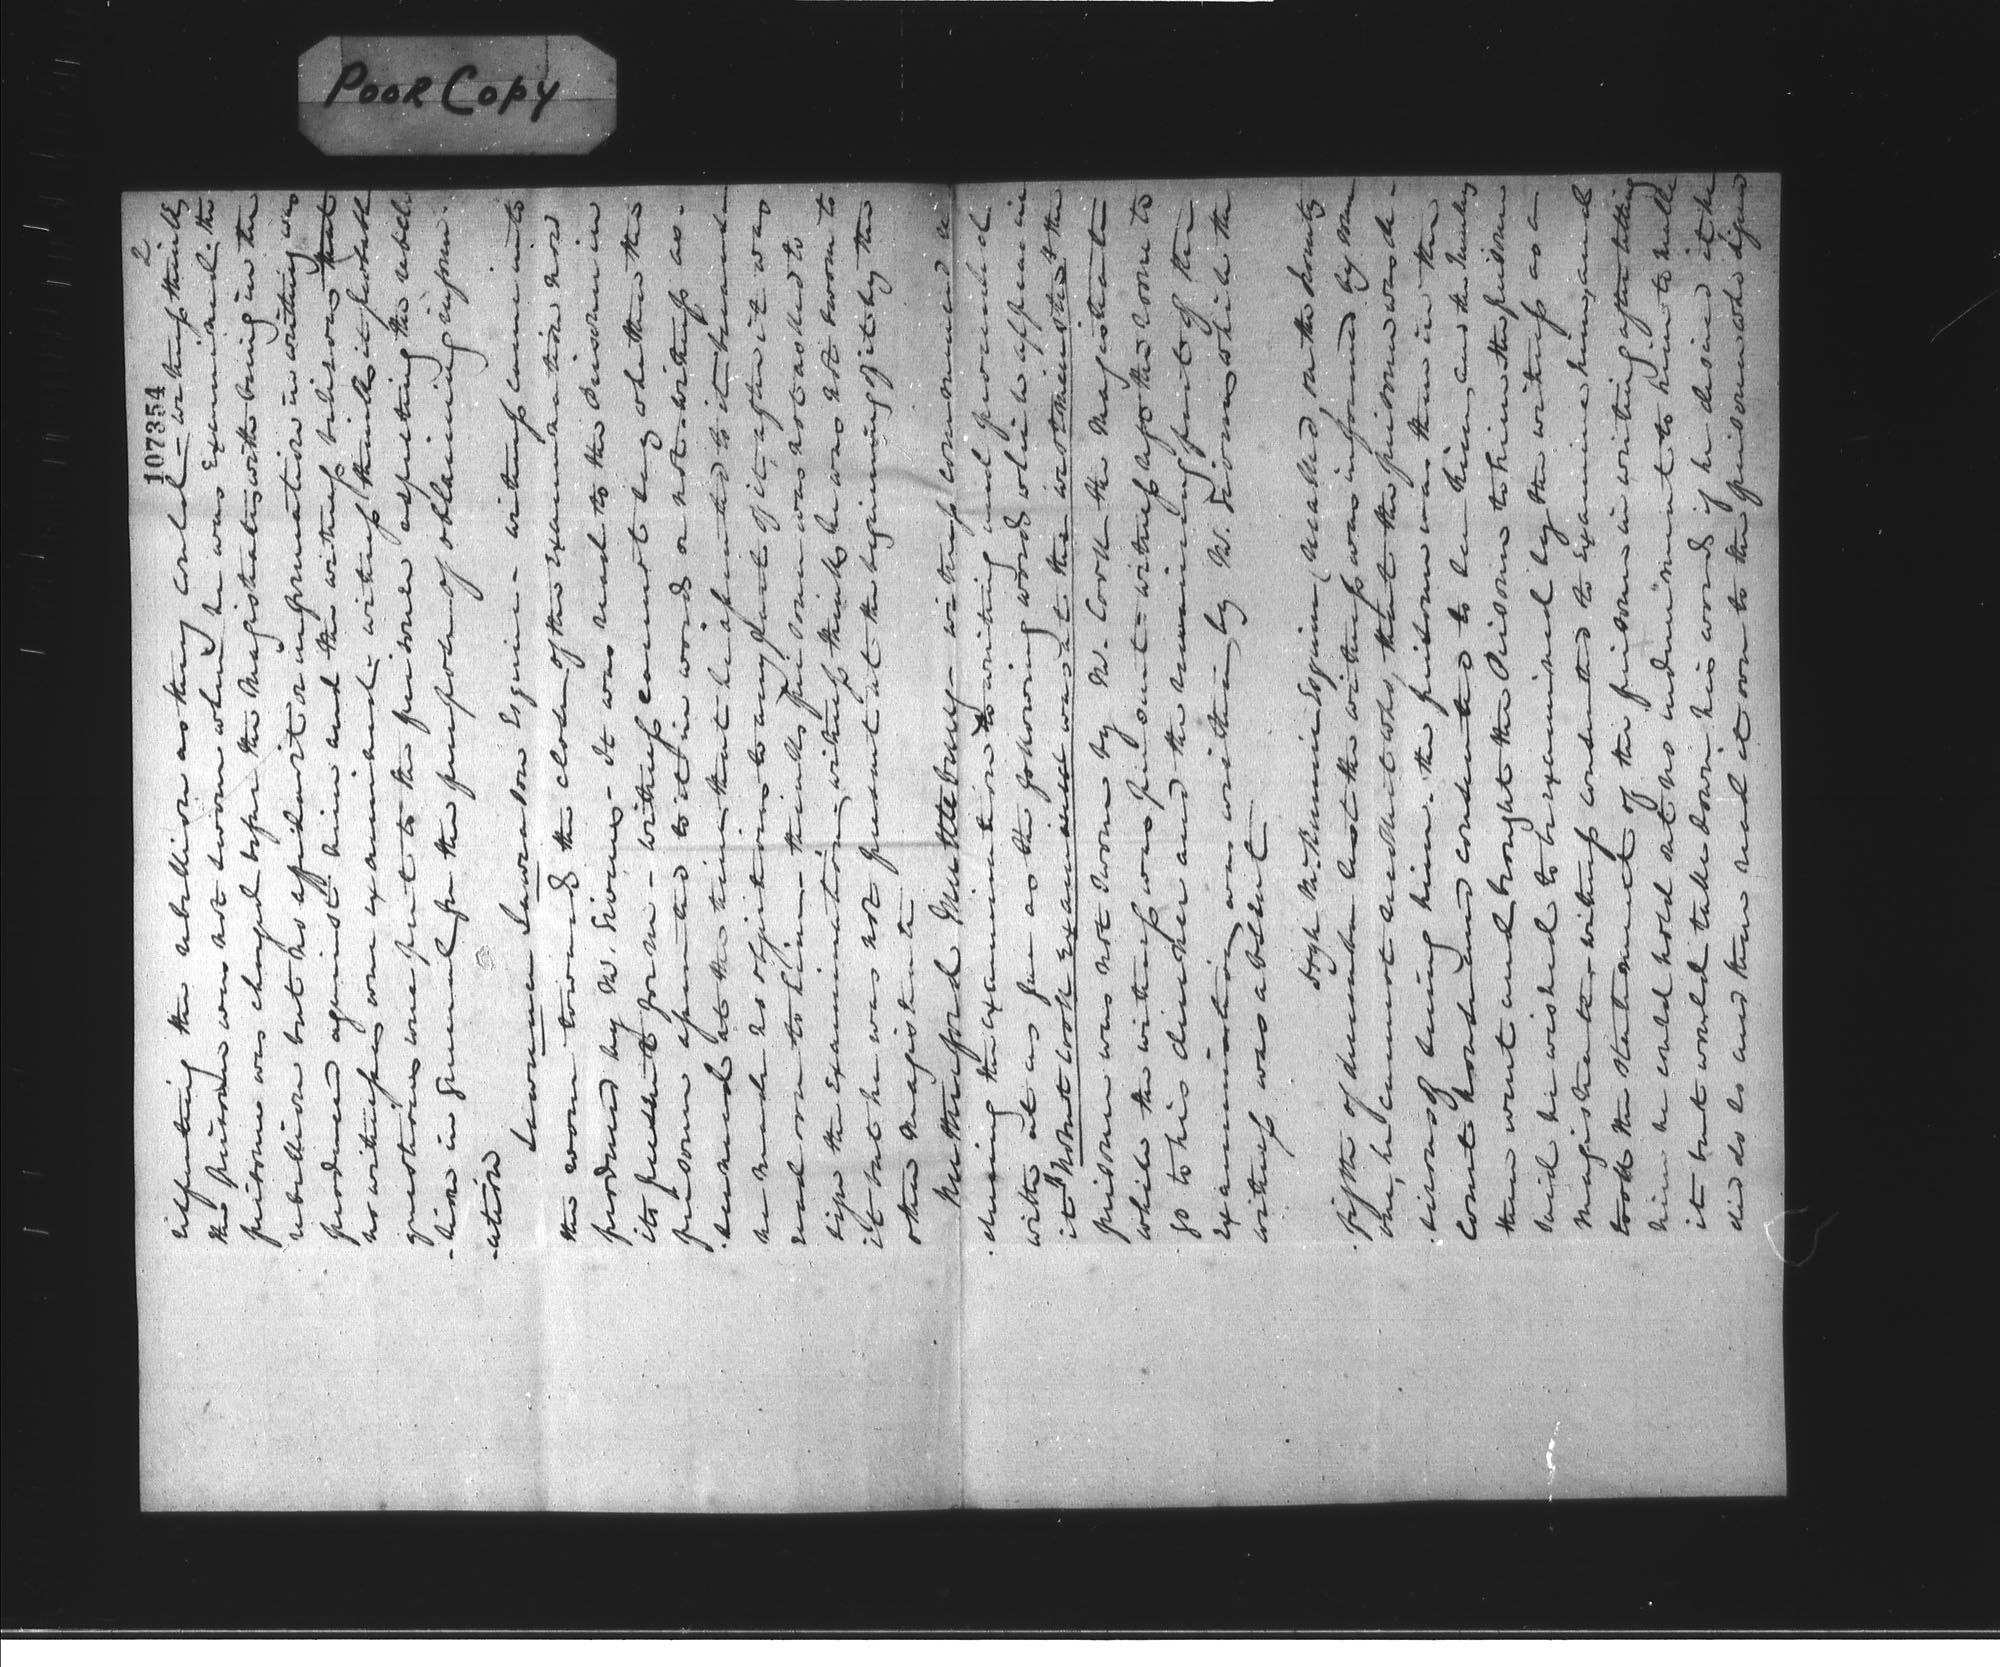 POOR COPY
107354
2
respecting the rebellion as they could – witness thinks
the prisoner was not sworn when he was examined. the
prisoner was charged before the Magistrates with being in the
rebellion but no affidavit or information in writing was
produced against him and the witness believes that
no witnesses were examined – witness thinks it probable
questions were put to the prisoner respecting the rebel-
-lion in general for the purpose of obtaining inform-
-ation
Lawrence Lawrason Esquire – witness came into
the room towards the close of the examination now
produced by Mr. Givens – It was read to the Prisoner in
its present form – witness cannot say whether the
prisoner assented to it in words or not – witness as-
-sumed at the time that he assented to it because
he made no objections to any part of it, after it was
read over to him – thinks prisoner was not asked to
sign the examination, witness thinks he was not sworn to
it but he was not present at the beginning of it by the
other Magistrate
Rutherford Muttlebury – witness commenced
during the examination to writing and proceeded
with it as far as the following words which appear in
it "Robert Cook examined was at the westminster the
prisoner was not sworn by Mr. Cook the Magistrate
while the witness was present – witness left the room to
go to his dinner and the remaining part of the
examination was written by Mr. Givens while the
witness was absent
Hugh McKinnon Esquire, recalled, on the twenty
fifth of december last the witness was informed by some
one, he cannot recollect who, that the prisoner was de-
-sirous of seeing him. the prisoner was then in the
Court house and consented to see him, and the
then went and brought the Prisoner to him the prisoner
said he wished to be examined by the witness as a
Magistrate. witness consented to examine him, and
took the statement of the prisoner in writing after telling
him he could hold out no inducement to him to make
it but would take down his words if he desired it he
did so and then read it over to the prisoner who signed